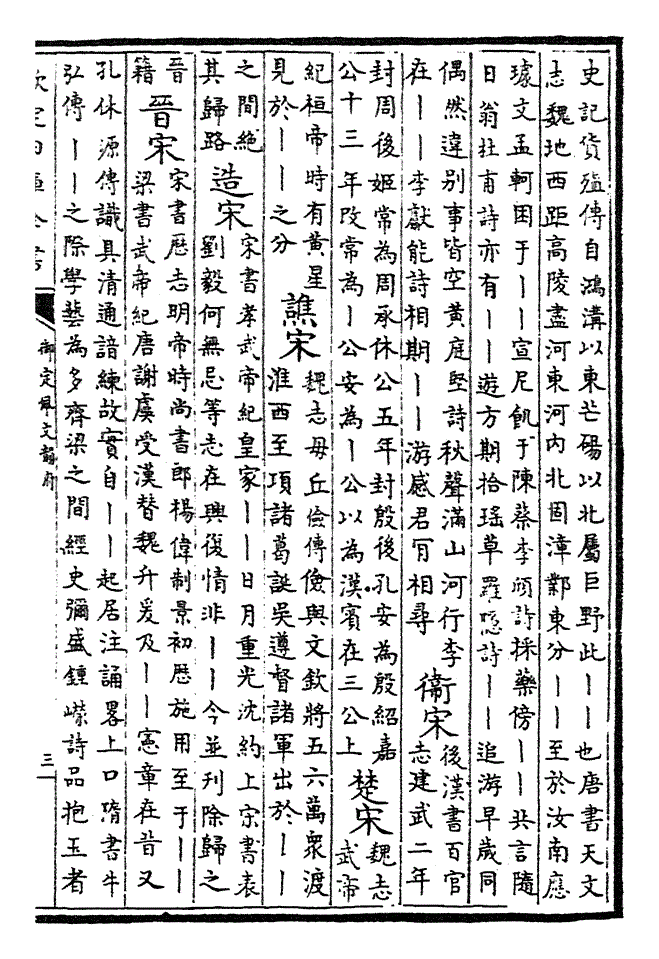 史記貨殖傳自鴻溝以東芒碭以北屬巨野此丨丨也唐書天文
志魏地西距高陵盡河東河內北固漳鄴東分丨丨至於汝南應
璩文孟軻困于丨丨宣尼飢于陳蔡李頎詩採藥傍丨丨共言隨
日翁杜甫詩亦有丨丨遊方期拾瑶草羅隠詩丨丨追游早歲同
偶然違别事皆空黄庭堅詩秋聲滿山河行李
在丨丨李獻能詩相期丨丨游感君肎相尋
衞宋
後漢書百官
志建武二年
封周後姬常為周承休公五年封殷後孔安為殷紹嘉
公十三年改常為丨公安為丨公以為漢賓在三公上
楚宋
魏志
武帝
紀桓帝時有黄星
見於丨丨之分
譙宋
魏志毋丘儉傳儉與文欽將五六萬衆渡
淮西至項諸葛誕吴遵督諸軍出於丨丨
之間絶
其歸路
造宋
宋書孝武帝紀皇家丨丨日月重光沈約上宋書表
劉毅何無忌等志在興復情非丨丨今並刊除歸之
晉
籍
晉宋
宋書歴志明帝時尚書郎楊偉制景初歴施用至于丨丨
梁書武帝紀唐謝虞受漢替魏升爰及丨丨憲章在昔又
孔休源傳識具清通諳練故實自丨丨起居注誦畧上口隋書牛
弘傳丨丨之際學藝為多齊梁之間經史彌盛鍾嶸詩品抱玉者
欽定四庫全書
御定佩文韻府
三